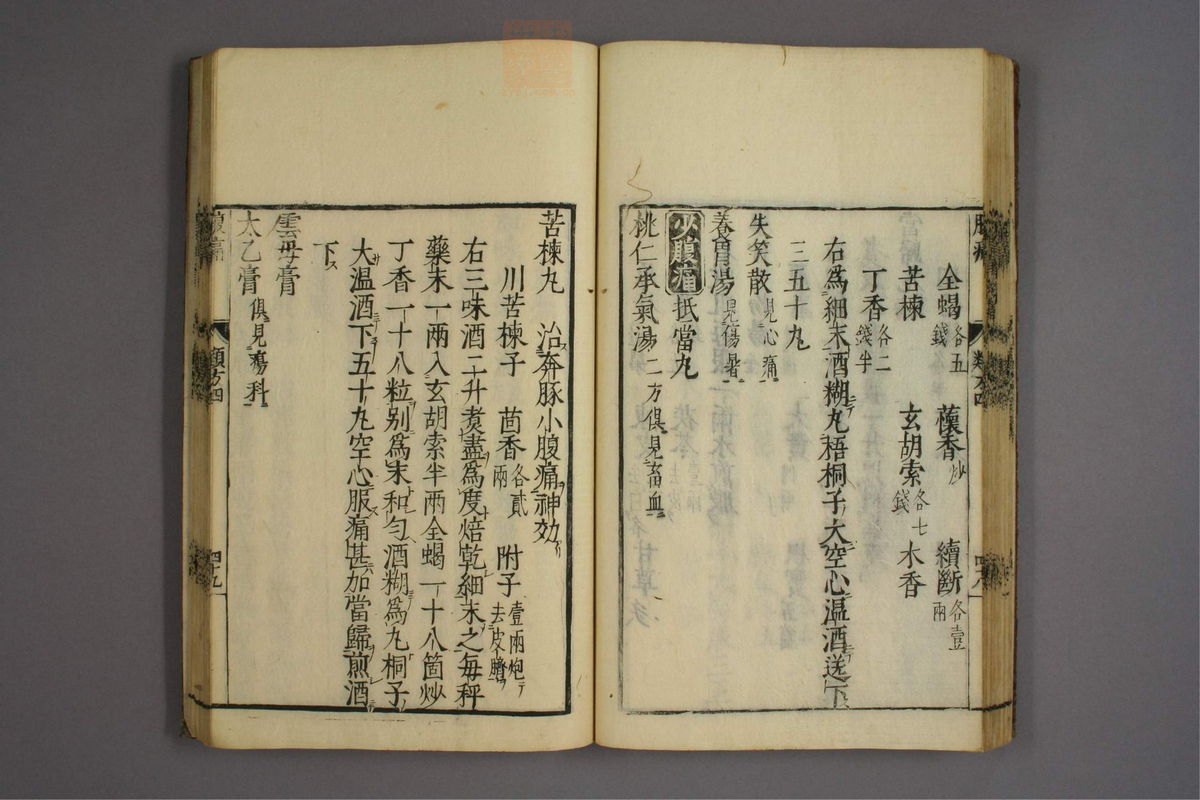 全蝎各五錢 蘹香炒 續斷各壹兩
苦楝 玄胡索各七錢 木香
丁香各二錢半
右為細末酒糊丸梧桐子大空心温酒送下
三五十丸
失笑散見心痛
養胃湯見傷暑
少腹痛 抵當丸
桃仁承氣湯二方俱見畜血
類方四
四十八
苦楝丸 治奔豚小腹痛神効
川苦楝子 茴香各貳兩 附子壹兩炮去皮臍
右三味酒二升煑盡為度焙乾細末之毎秤
藥末一兩入玄胡索半兩全蝎一十八箇炒
丁香一十八粒别為末和匀酒糊為丸桐子
大温酒下五十丸空心服痛甚加當歸煎酒
下
雲母膏
太乙膏俱見瘍科
腹痛
類方四
四十九